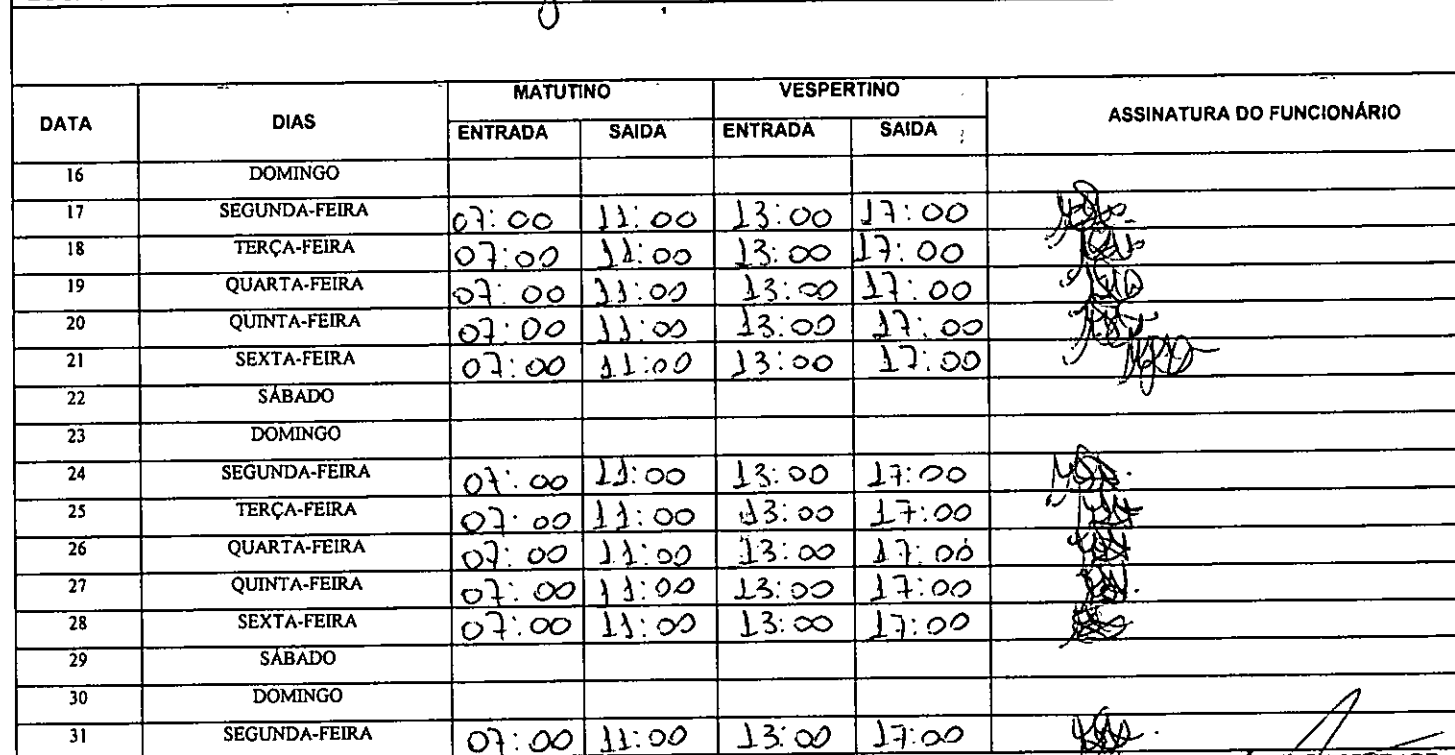 MATUTINO VESPERTINO
DATA DIAS ASSINATURA DO FUNCIONÁRIO
ENTRADA SAIDA ENTRADA SAIDA
16 DOMINGO
17 SEGUNDA-FEIRA 07:00 11:00 13:00 17:00
18 TERÇA-FEIRA 07:00 11:00 13:00 17:00
19 QUARTA-FEIRA 07:00 11:00 13:00 17:00
20 QUINTA-FEIRA 07:00 11:00 13:00 17:00
21 SEXTA-FEIRA 07:00 11:00 13:00 17:00
22 SÁBADO
23 DOMINGO
24 SEGUNDA-FEIRA 07:00 11:00 13:00 17:00
25 TERÇA-FEIRA 07:00 11:00 13:00 17:00
26 QUARTA-FEIRA 07:00 11:00 13:00 17:00
27 QUINTA-FEIRA 07:00 11:00 13:00 17:00
28 SEXTA-FEIRA 07:00 11:00 13:00 17:00
29 SÁBADO
30 DOMINGO
31 SEGUNDA-FEIRA 07:00 11:00 13:00 17:00